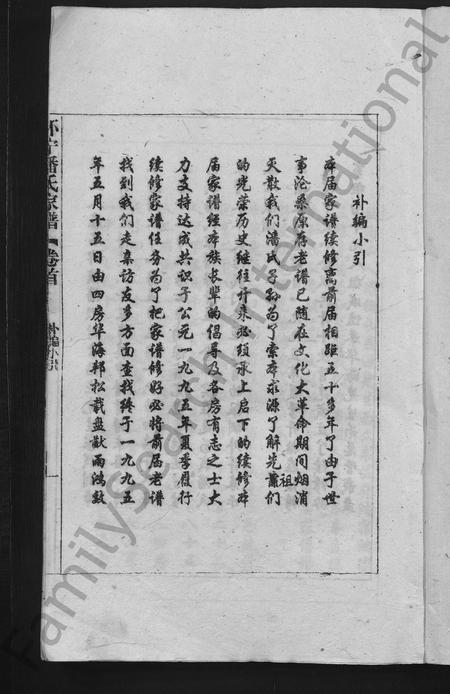 补编小引
本届家谱续修离前届相距五十多年了由于世
事沧桑原存老谱已随在文化大革命期间烟消
灭散我们潘氏子孙为了索本求源了解先萧们
祖
的光荣历史继往开来必须承上启下的续修本
届家谱经本族长辈的倡导及各房有志之士大
力支持达成共识于公元一九九五年夏季履行
续修家谱任务为了把家谱修好必将前届老谱
找到我们走亲访友多方面查找终于一九九五
年五月十五日由四房华海邦松载盘献雨鸿钦
潘氏家谱 卷首
补编小引
FamilySearch International